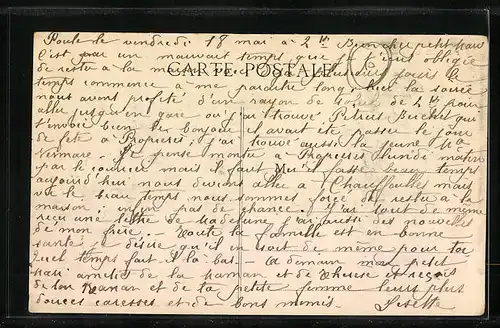 Poule le vendredi 18 mai à 2 h petit
C'est par un mauvais temps que je suis obligée
de rester à la
CARTE POSTALE
temps commence à me paraître long, hier la soirée
nous avons profité d'un rayon de soleil de 2 h pour
aller jusqu'en gare où j'ai trouvé Petrus Buchet qui
t'envoie bien le bonjour il avait été passer le jour
de fête à Propières j'ai trouvé aussi la jeune Mme
je pense monter à Propières lundi matin
par le courrier mais il faut qu'il fasse beau temps
aujourd'hui nous devions aller à Chauffailles mais
vu le beau temps nous sommes forcé de rester à la
maison; enfin pas de chance. J'ai tout de même
reçu une lettre de Madeleine j'ai aussi des nouvelles
de mon frère. Toute la famille est en bonne
santé je désire qu'il en soit de même pour toi
Quel temps fait-il là-bas. A demain mon petit
amitiés de la maman et de Thérèse et reçois
de ton Nanan et de ta petite femme leurs plus
douces caresses et de bons mimis. Lisette